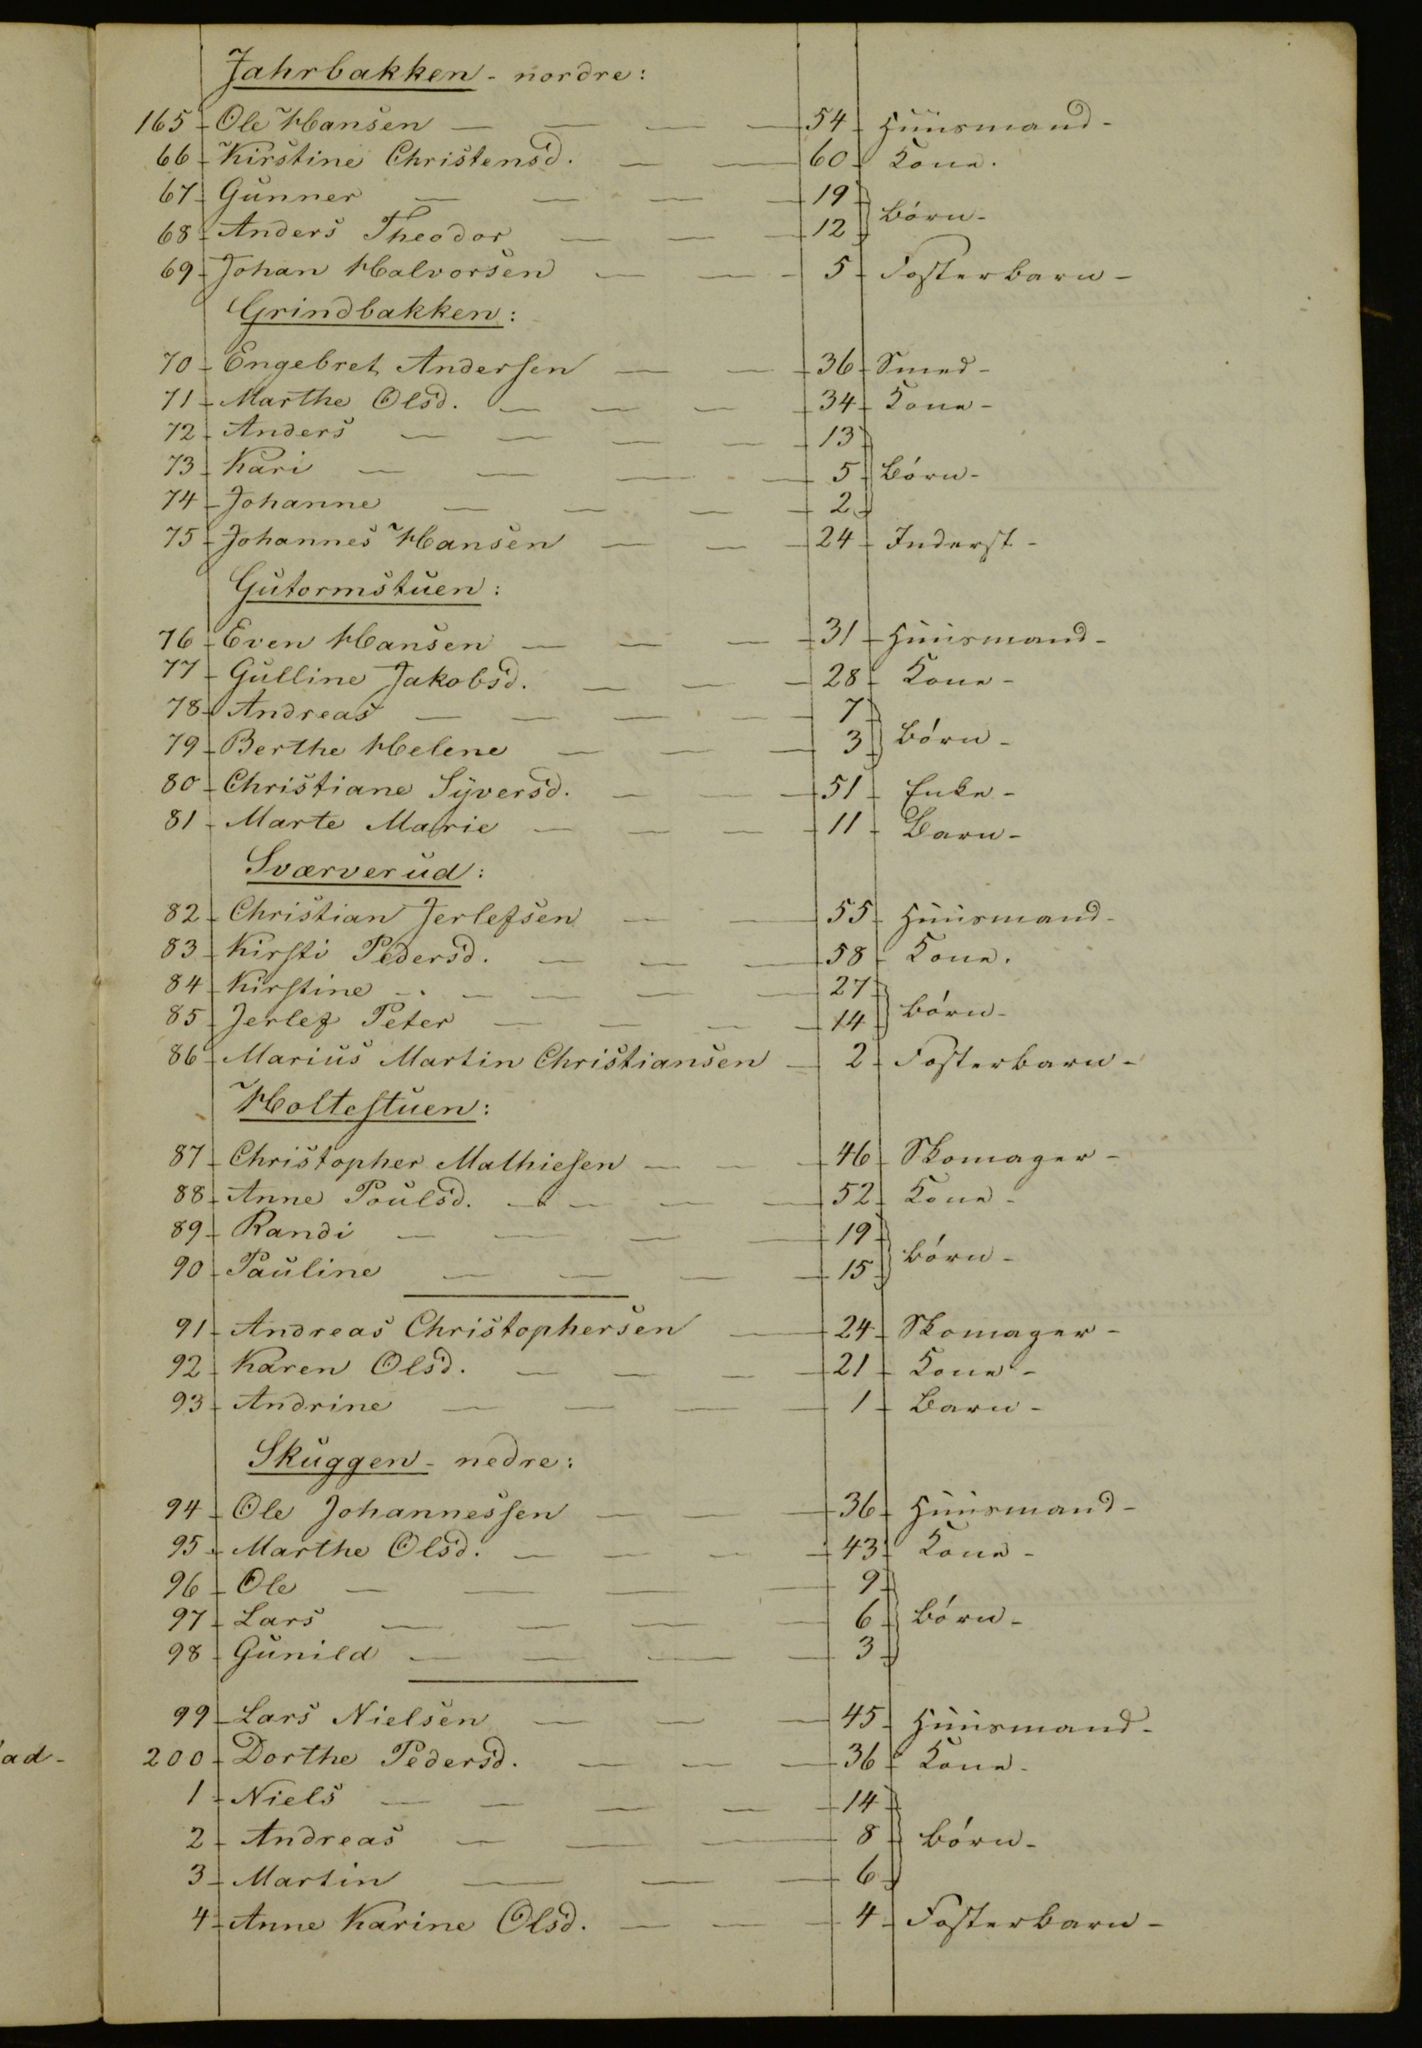 Jahrbakken - nordre:
165 Ole Hansen 54 Huusmand
66 Kirstine Christensd. 60 Kone.
67 Gunner 19
68 Anders Theodor 12 Børn
69 Johan Halvorsen 5 Fosterbarn
Grindbakken:
70 Engebret Andersen 36 Smed
71 Marthe Olsd. 34 Kone
72 Anders 13
73 Kari 5 Børn
74 Johanne 2
75 Johannes Hansen 24 Inderst
Gutormstuen:
76 Even Hansen 31 Huusmand
77 Gulline Jakobsd. 28 Kone
78 Andreas 7
79 Berthe Helene 3 Børn
80 Christiane Syversd. 51 Enke
81 Marte Marie 11 Barn
Sværverud:
82 Christian Jerlefsen 55 Huusmand
83 Kirsti Pedersd. 58 Kone.
84 Kirstine 27
85 Jerlef Peter 14 Børn
86 Marius Martin Christiansen 2 Fosterbarn
Holtestuen:
87 Christopher Mathiesen 46 Skomager
88 Anne Poulsd. 52 Kone
89 Randi 19
90 Pauline 15 Børn
91 Andreas Christophersen 24 Skomager
92 Karen Olsd. 21 Kone
93 Andrine 1 Barn
Skuggen - nedre:
94 Ole Johannessen 36 Huusmand
95 Marthe Olsd. 43 Kone
96 Ole 9
97 Lars 6 Børn
98 Gunild 3
99 Lars Nielsen 45 Huusmand
ad-
200 Dorthe Pedersd. 36 Kone
1 Niels 14
2 Andreas 8 Børn
3 Martin 6
4 Anne Karine Olsd. 4 Fosterbarn